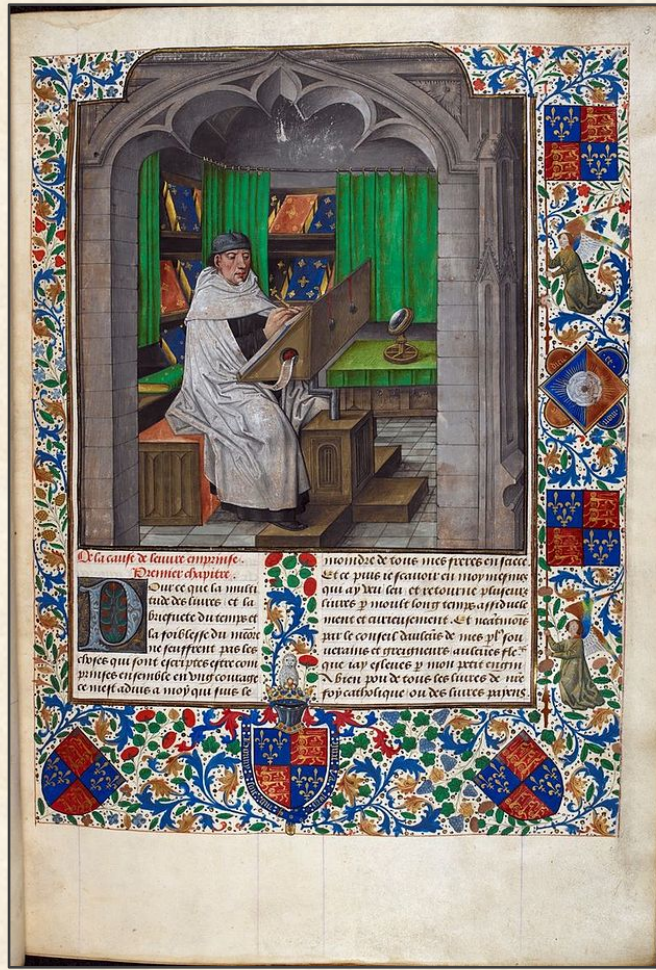 De la cause de leuure emprinse.
Premier chapitre.
Pour ce que la multi
tude des liures et la
briefuete du temps et
la foiblesse du
ne seuffrent pas les
choses qui sont escriptes estre com
prinses ensemble en vng courage
ce mest aduis a moy qui suis le
moindre de tous mes freres en
Et ce puis ie scauoir en moy mesmes
qui ay veu leu et retourne pluseurs
liures p moult long temps assiduele
ment et curieusement. Et neantmois
par le conseil daulcuns de mes pl9 sou
uerains et greigneurs aulcunes
que iay esleues p mon petit engin
A bien pou de tous les liures de nre
foy catholique ou des liures payens